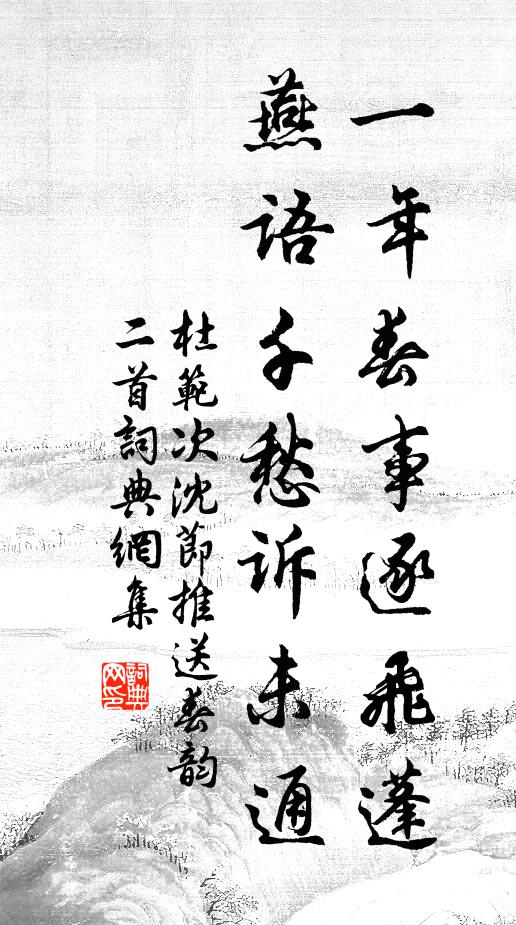 一年春事逐飛蓬
燕語千愁訴未通
杜範次沈節推送春韵
二首詞典網集
詞典網印